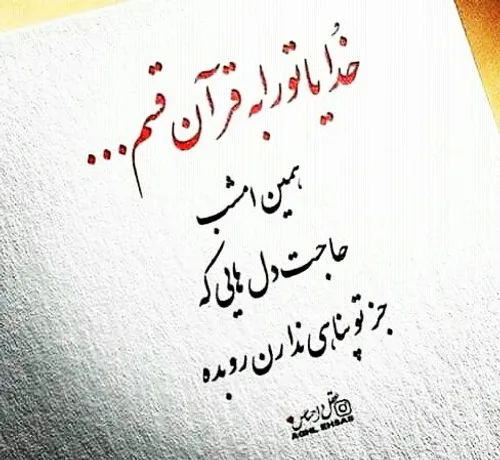 خدایا تو را به قرآن قسم...
همین امشب
حاجت دل هایی که
جز تو پناهی ندارن رو بده
عقل و احساس
AGHL EHSAS